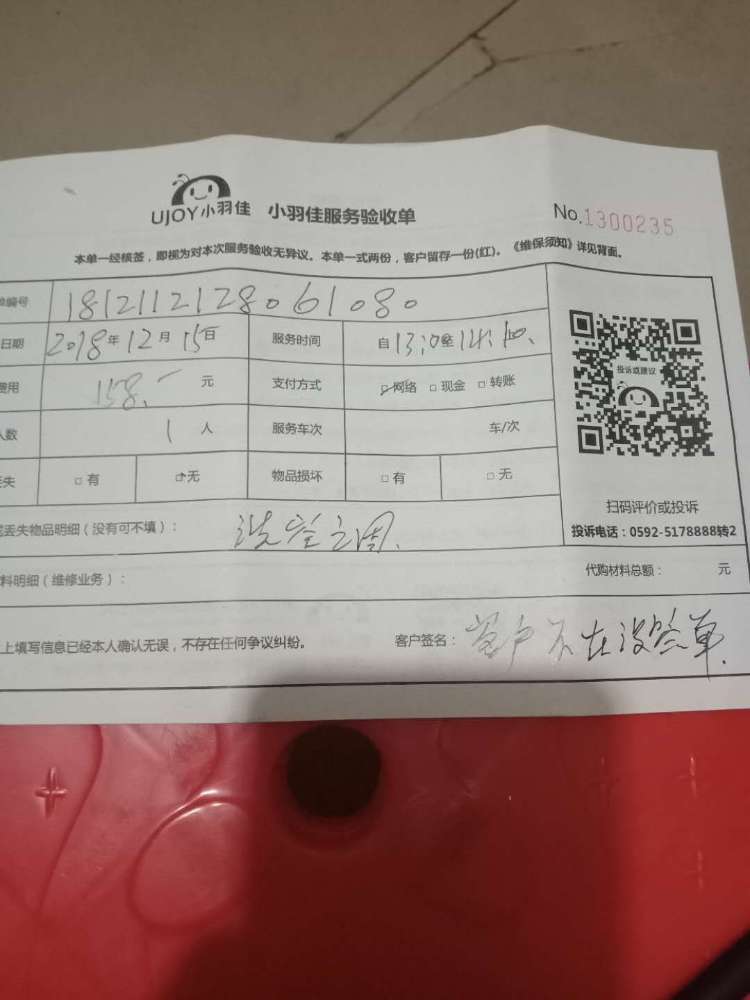 UJOY小羽佳 小羽佳服务验收单 No.1300235
本单一经核签，即视为对本次服务验收无异议。本单一式两份，客户留存一份(红)。《维保须知》详见背面。
编号 181211212806 1080
日期 2018年12月15日 服务时间 自13:0至14:10
费用 158.- 元 支付方式 网络 现金 转账
人数 1人 服务车次 车/次
失 有 无 物品损坏 有 无
投诉或建议
扫码评价或投诉
投诉电话：0592-5178888转2
丢失物品明细（没有可不填）： 洗空调.
料明细（维修业务）： 代购材料总额： 元
上填写信息已经本人确认无误，不存在任何争议纠纷。 客户签名： 客户不在没签单.